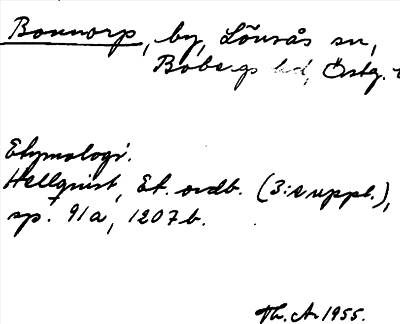 Bonnorp, by, Lönsås sn,
Bobergs hd, Östg.
Etymologi.
Hellquist, Et. ordb. (3:e uppl.),
sp. 91a, 1207b.
Th. A. 1955.